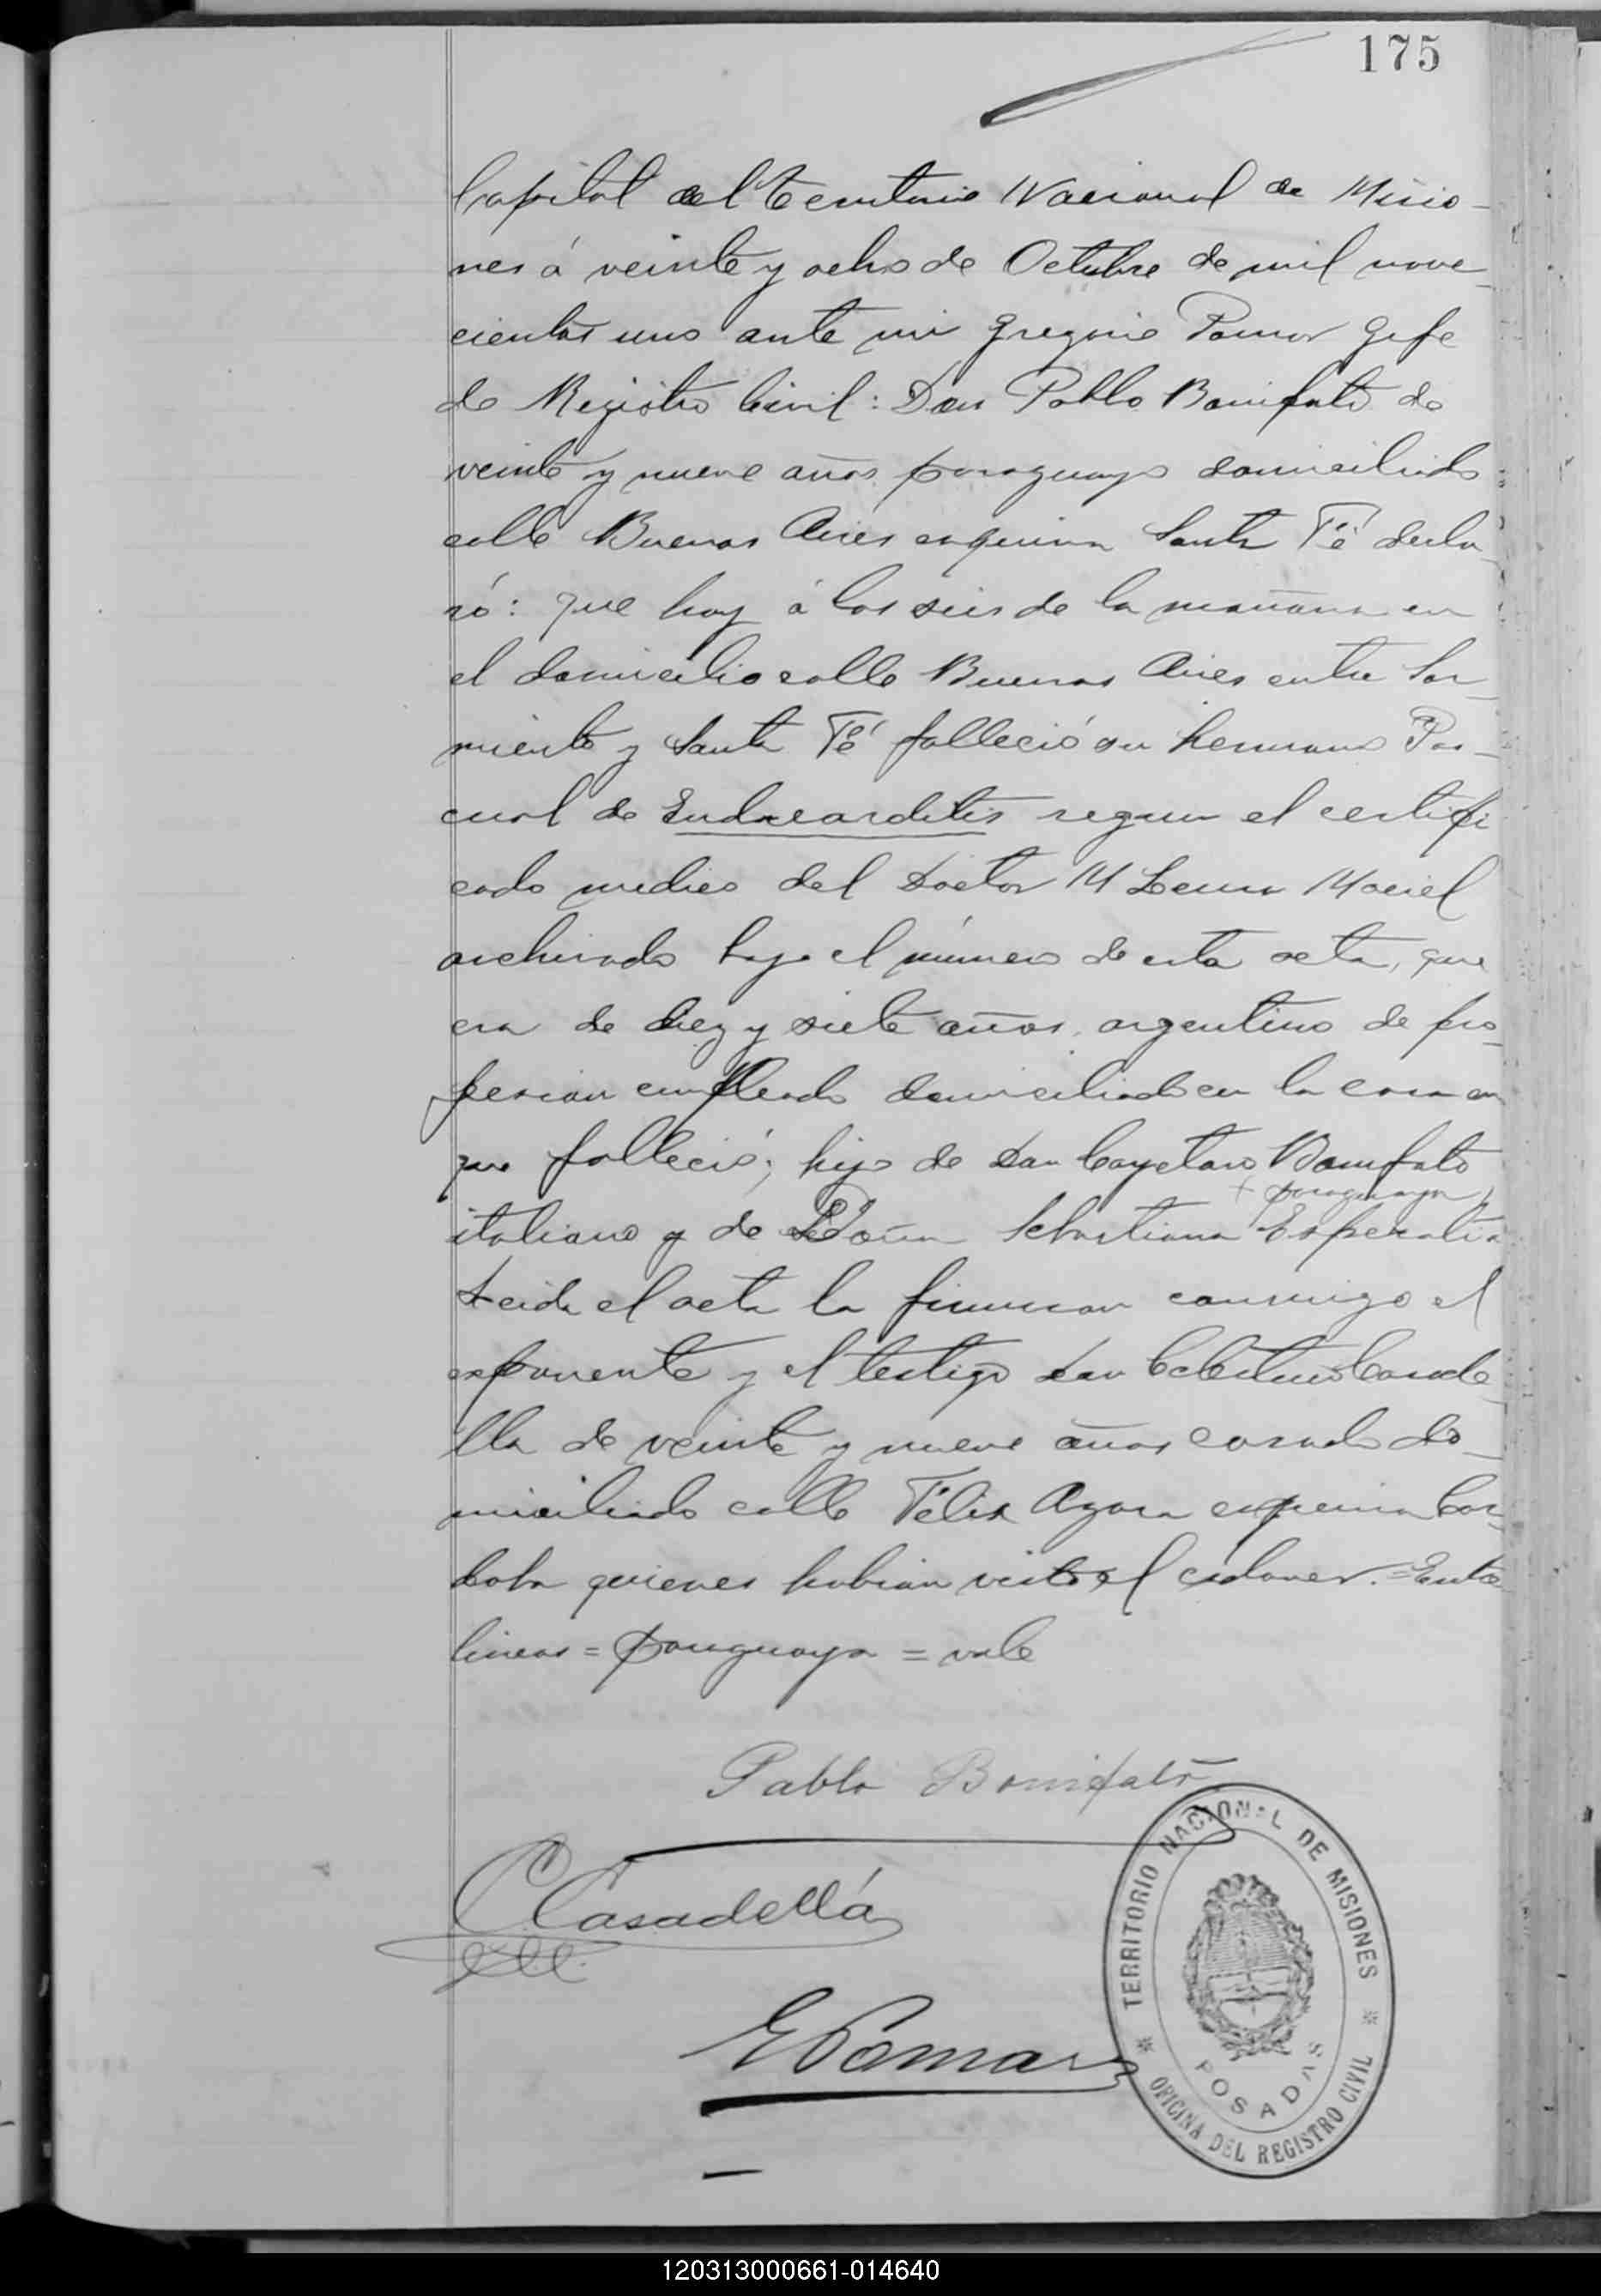 175
Capital del Territorio Nacional de Misio-
nes á veinte y ocho de Octubre de mil nove-
cientos uno ante mi Gregorio Pomar Gefe
de Registro Civil: Don Pablo Bonifato de
veinte y nueve años paraguayo domiciliado
calle Buenos Aires esquina Santa Fé decla-
ró: que hoy á las seis de la mañana en
el domicilio calle Buenos Aires entre Sar-
miento y Santa Fé falleció su hermano Pas-
cual de Endocarditis segun el certifi
cado medico del Doctor M Lema Maciel
archivado bajo el número de esta acta, que
era de diez y siete años, argentino de pro-
fesion empleado domiciliado en la casa en
que falleció; hijo de Don Cayetano Bonifato
+ paraguaya
italiano y de Doña Sebastiana
Leida el acta la firmaron conmigo el
esponente y el testigo Don Celestino Casade
lla de veinte y nueve años casado do-
miciliado calle Félix Azara esquina Cor-
doba quienes habian visto el cadaver. = Entre
lineas = paraguaya = vale
Pablo Bonifato
CCasadellá
Pomar
TERRITORIO NACIONAL DE MISIONES
POSADAS
OFICINA DEL REGISTRO CIVIL
120313000661-014640